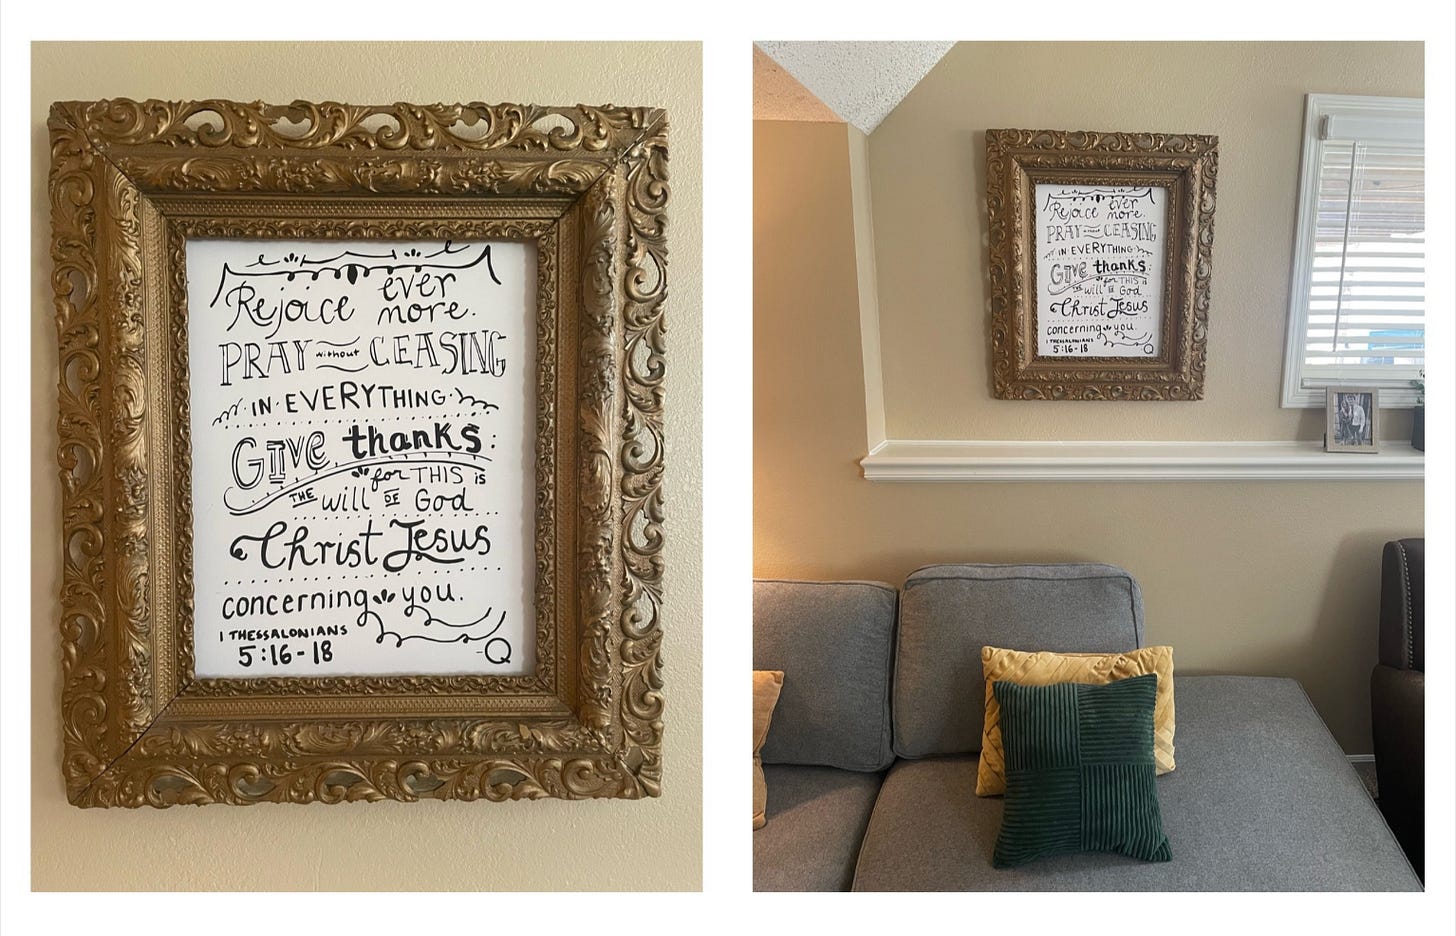 Rejoice ever more.
PRAY without CEASING
IN EVERYTHING
GIVE thanks:
for THIS is
THE will OF God
Christ Jesus
concerning you.
1 THESSALONIANS
5:16-18
-Q
Rejoice ever more.
PRAY without CEASING
IN EVERYTHING
GIVE thanks:
for THIS is
THE will OF God
Christ Jesus
concerning you.
1 THESSALONIANS
5:16-18
-Q